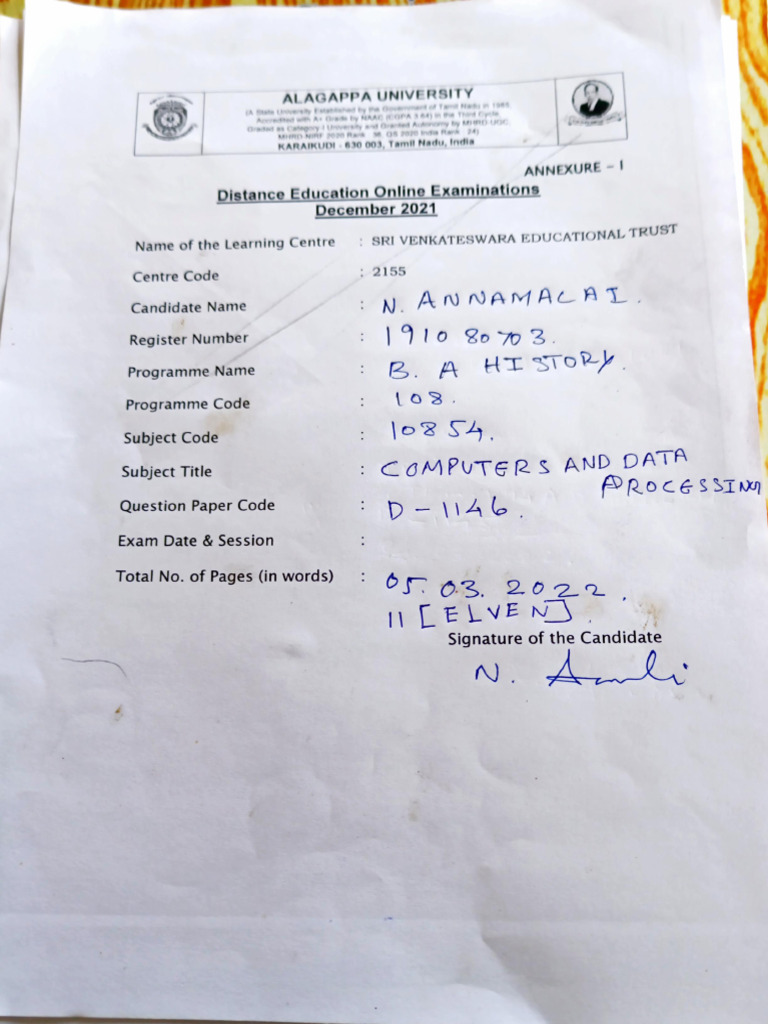 ALAGAPPA UNIVERSITY
(A State University Established by the Government of Tamil Nadu in 1985,
Accredited with A+ Grade by NAAC (CGPA 3.64) in the Third Cycle,
Graded as Category I University and Granted Autonomy by MHRD-UGC,
MHRD-NIRF 2020 Rank : 36, QS 2020 India Rank : 24)
KARAIKUDI - 630 003, Tamil Nadu, India
ANNEXURE - I
Distance Education Online Examinations
December 2021
Name of the Learning Centre : SRI VENKATESWARA EDUCATIONAL TRUST
Centre Code : 2155
Candidate Name : N. ANNAMALAI.
Register Number : 1910 80703.
Programme Name : B. A HISTORY.
Programme Code : 108.
Subject Code : 10854.
Subject Title : COMPUTERS AND DATA
PROCESSING
Question Paper Code : D - 1146.
Exam Date & Session :
Total No. of Pages (in words) : 05. 03. 2022.
11 [ELVEN].
Signature of the Candidate
N.